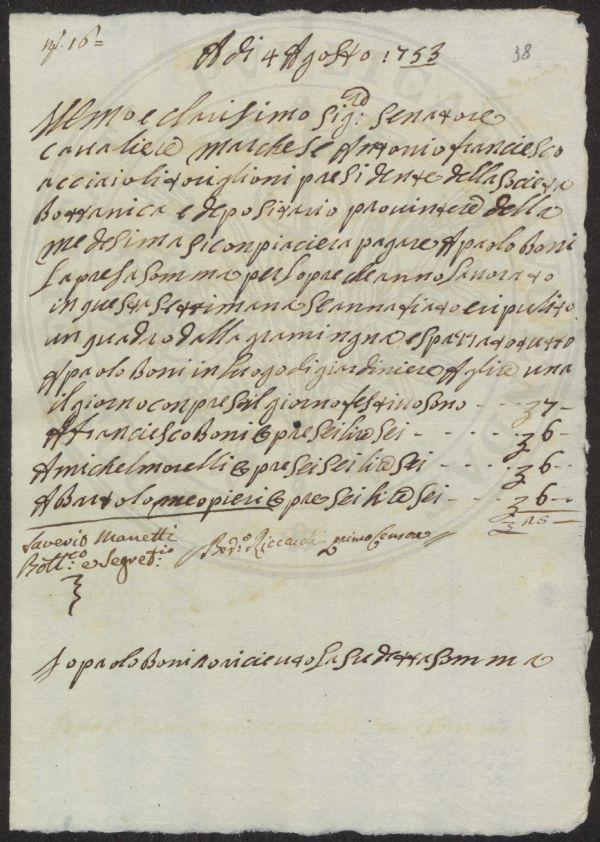 nº. 16=
38
A di 4 Agosto 1753
Illmo e Clarisimo Sig:re Senatore
cavaliere Marchese Antonio franciesco
acciaioli toriglioni presidente della Societa
Bottanica e depositario della
medesima si conpiaciera pagare A paolo Boni
la presa somma per lopre che anno lavorato
in questa settimana se anna fiato e ripulito
un quadro dalla gramingna e sparzato tutto
A paolo Boni in luogo di giardiniere A lire una
il giorno conpresi il giorno festivo sono - - - 7 -
A Franciesco Boni opre sei lire sei - - - - - 6 -
A michel morelli opre sei lire sei - - - - 6 -
A Bartolomeo pieri opre sei lire sei - - - - 6 - -
25 -
Saverio Manetti
Bott:co e Segret:io
Riccardi primo Censore
Io paolo Boni o riceuto la sudetta somma